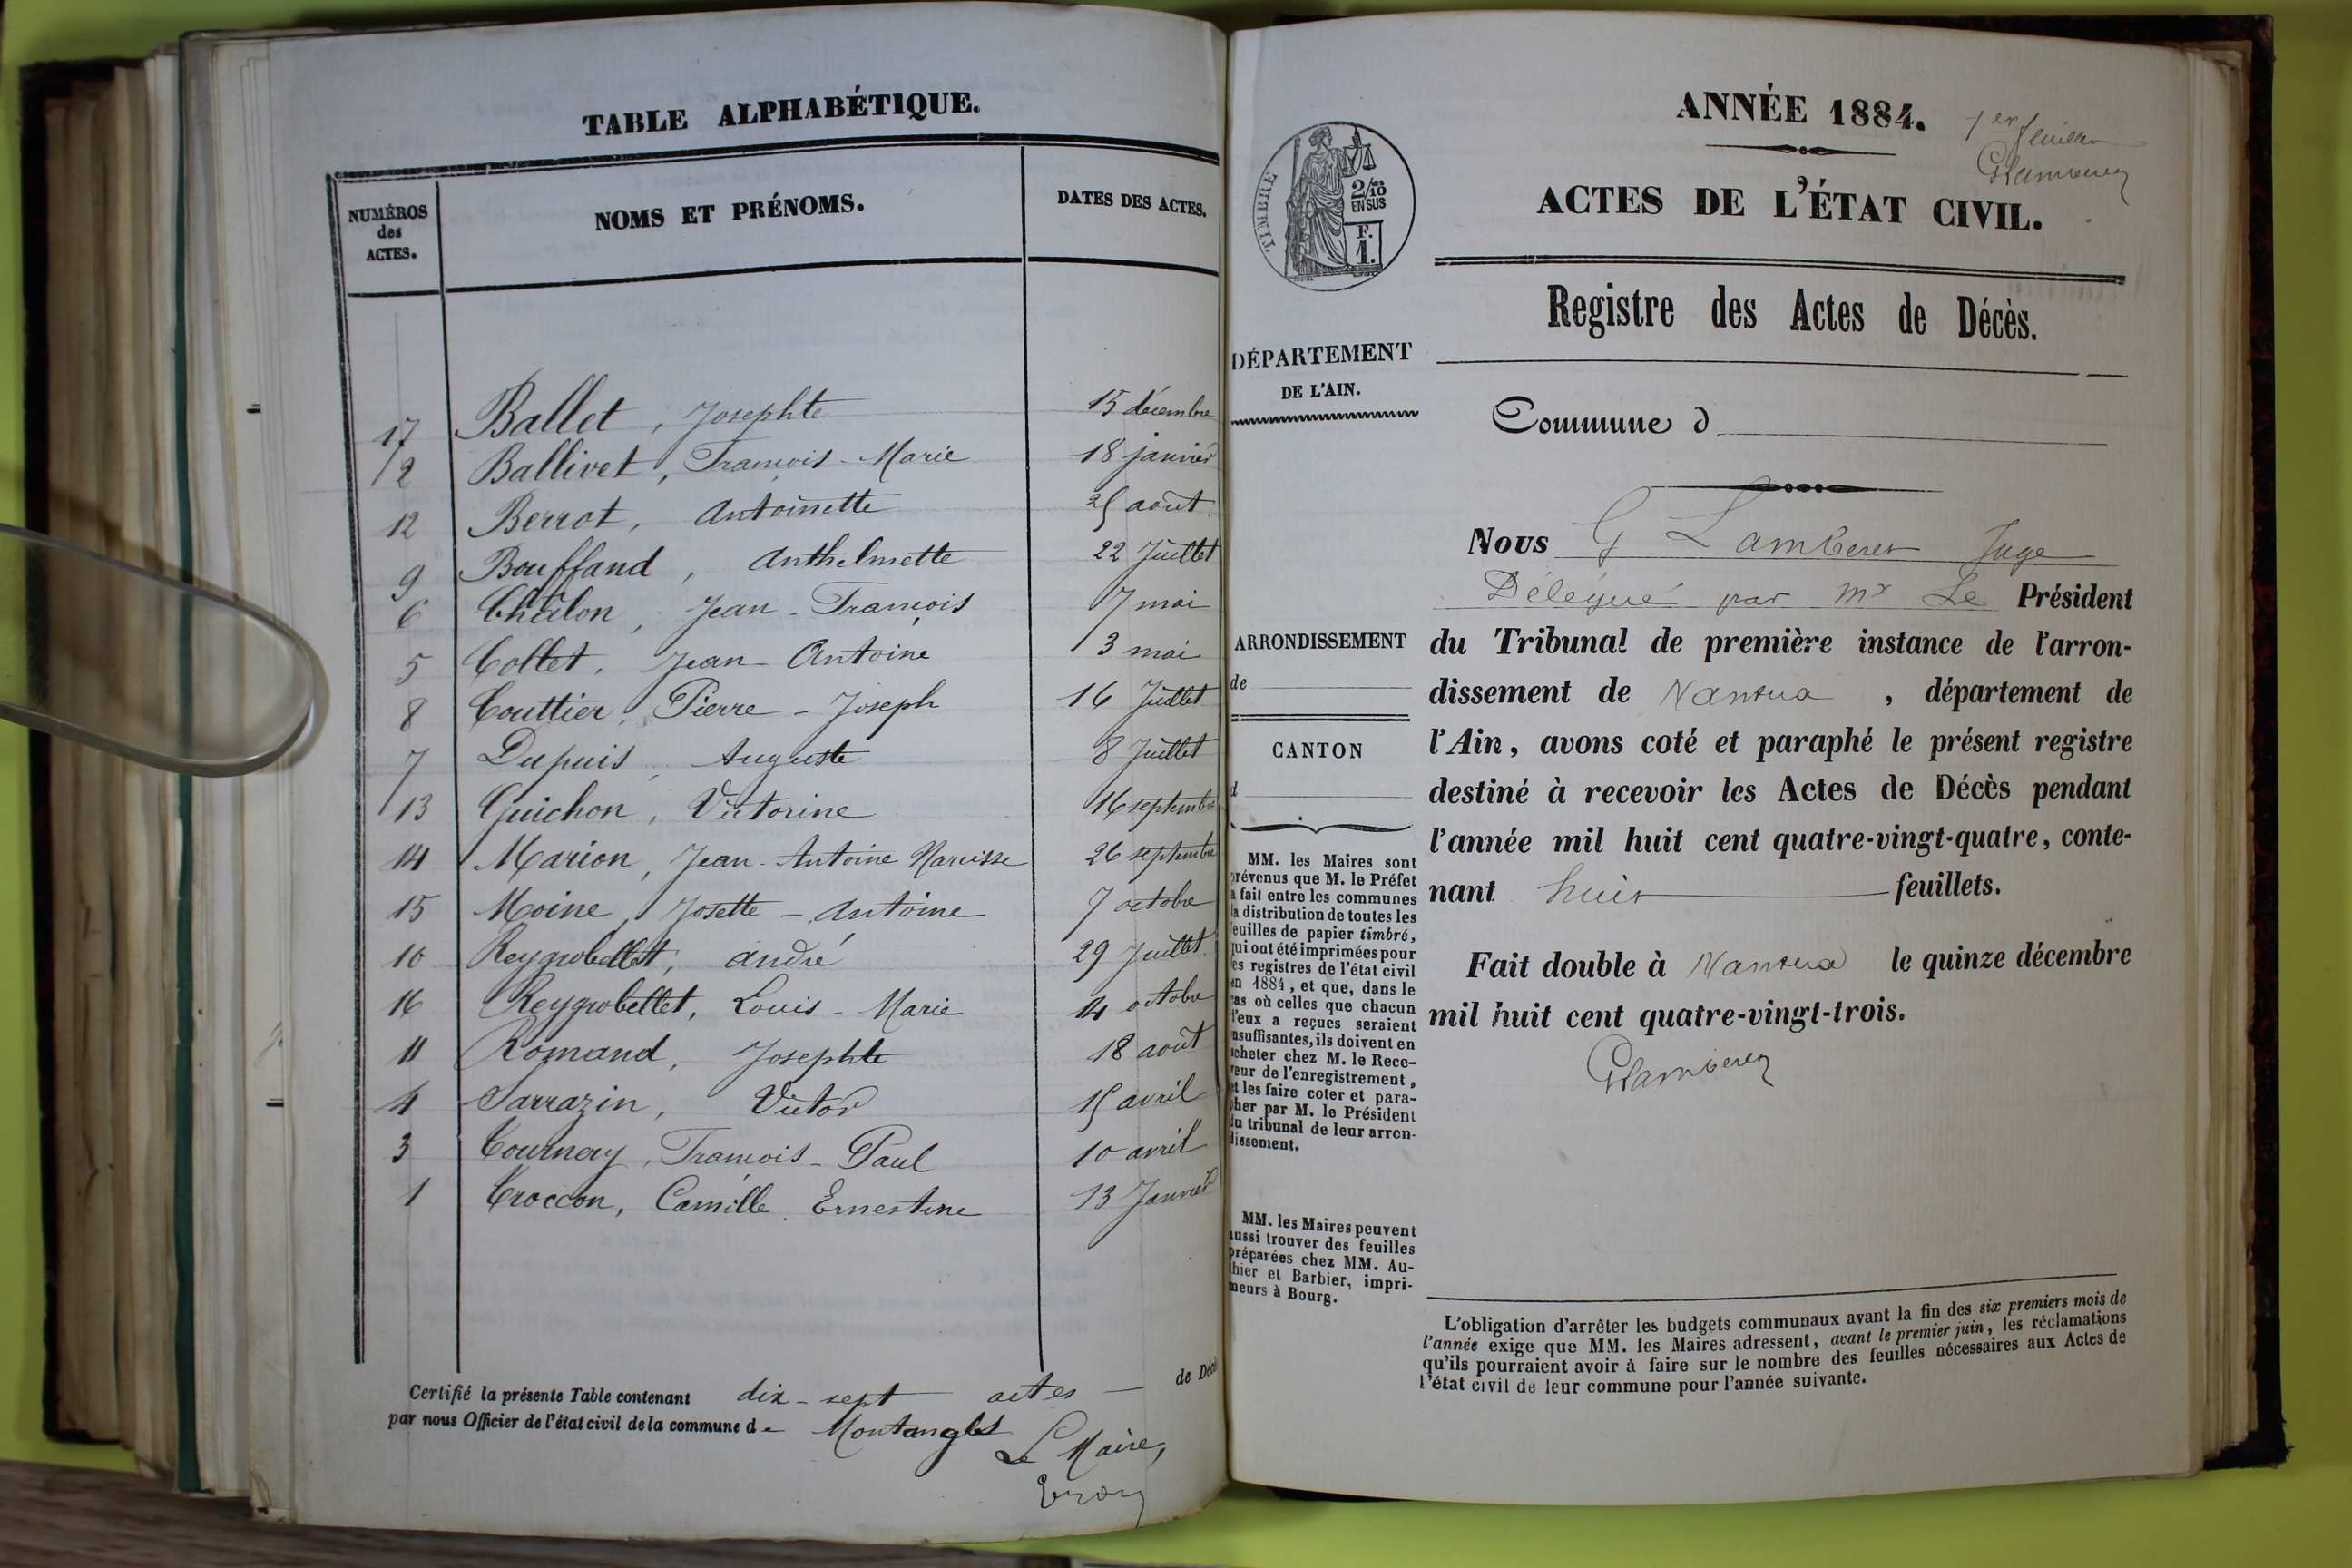 TABLE ALPHABÉTIQUE.
NUMÉROS
des
ACTES.
NOMS ET PRÉNOMS.
DATES DES ACTES.
17 Ballet, Josephte 15 décembre
2 Ballivet, François-Marie 18 janvier
12 Berrot, Antoinette 25 août
9 Bouffand, Anthelmette 22 Juillet
6 Châlon, Jean-François 7 mai
5 Collet, Jean-Antoine 3 mai
8 Couttier, Pierre-Joseph 16 Juillet
7 Dupuis, Auguste 8 Juillet
13 Guichon, Victorine 16 septembre
14 Marion, Jean-Antoine Narcisse 26 septembre
15 Moine, Josette-Antoine 7 octobre
10 Reygrobellet, André 29 Juillet
16 Reygrobellet, Louis-Marie 14 octobre
11 Romand, Josephte 18 août
4 Sarrazin, Victor 15 avril
3 Tournay, François-Paul 10 avril
1 Troccon, Camille Ernestine 13 Janvier
Certifié la présente Table contenant dix-sept actes — de Déc
par nous Officier de l'état civil de la commune de Montanges
Le Maire,
TIMBRE
2/10
EN SUS
F.
1.
DÉPARTEMENT
DE L'AIN.
ARRONDISSEMENT
de
CANTON
d
MM. les Maires sont
prévenus que M. le Préfet
a fait entre les communes
la distribution de toutes les
feuilles de papier timbré,
qui ont été imprimées pour
les registres de l'état civil
en 1884, et que, dans le
cas où celles que chacun
d'eux a reçues seraient
insuffisantes, ils doivent en
acheter chez M. le Rece-
veur de l'enregistrement,
et les faire coter et para-
pher par M. le Président
du tribunal de leur arron-
dissement.
MM. les Maires peuvent
aussi trouver des feuilles
préparées chez MM. Au-
thier et Barbier, impri-
meurs à Bourg.
ANNÉE 1884.
1er feuillet
GLamberet
ACTES DE L'ÉTAT CIVIL.
Registre des Actes de Décès.
Commune d
Nous G Lamberet Juge
Délégué par Mr Le Président
du Tribunal de première instance de l'arron-
dissement de Nantua, département de
l'Ain, avons coté et paraphé le présent registre
destiné à recevoir les Actes de Décès pendant
l'année mil huit cent quatre-vingt-quatre, conte-
nant huit feuillets.
Fait double à Nantua le quinze décembre
mil huit cent quatre-vingt-trois.
GLamberet
L'obligation d'arrêter les budgets communaux avant la fin des six premiers mois de
l'année exige que MM. les Maires adressent, avant le premier juin, les réclamations
qu'ils pourraient avoir à faire sur le nombre des feuilles nécessaires aux Actes de
l'état civil de leur commune pour l'année suivante.